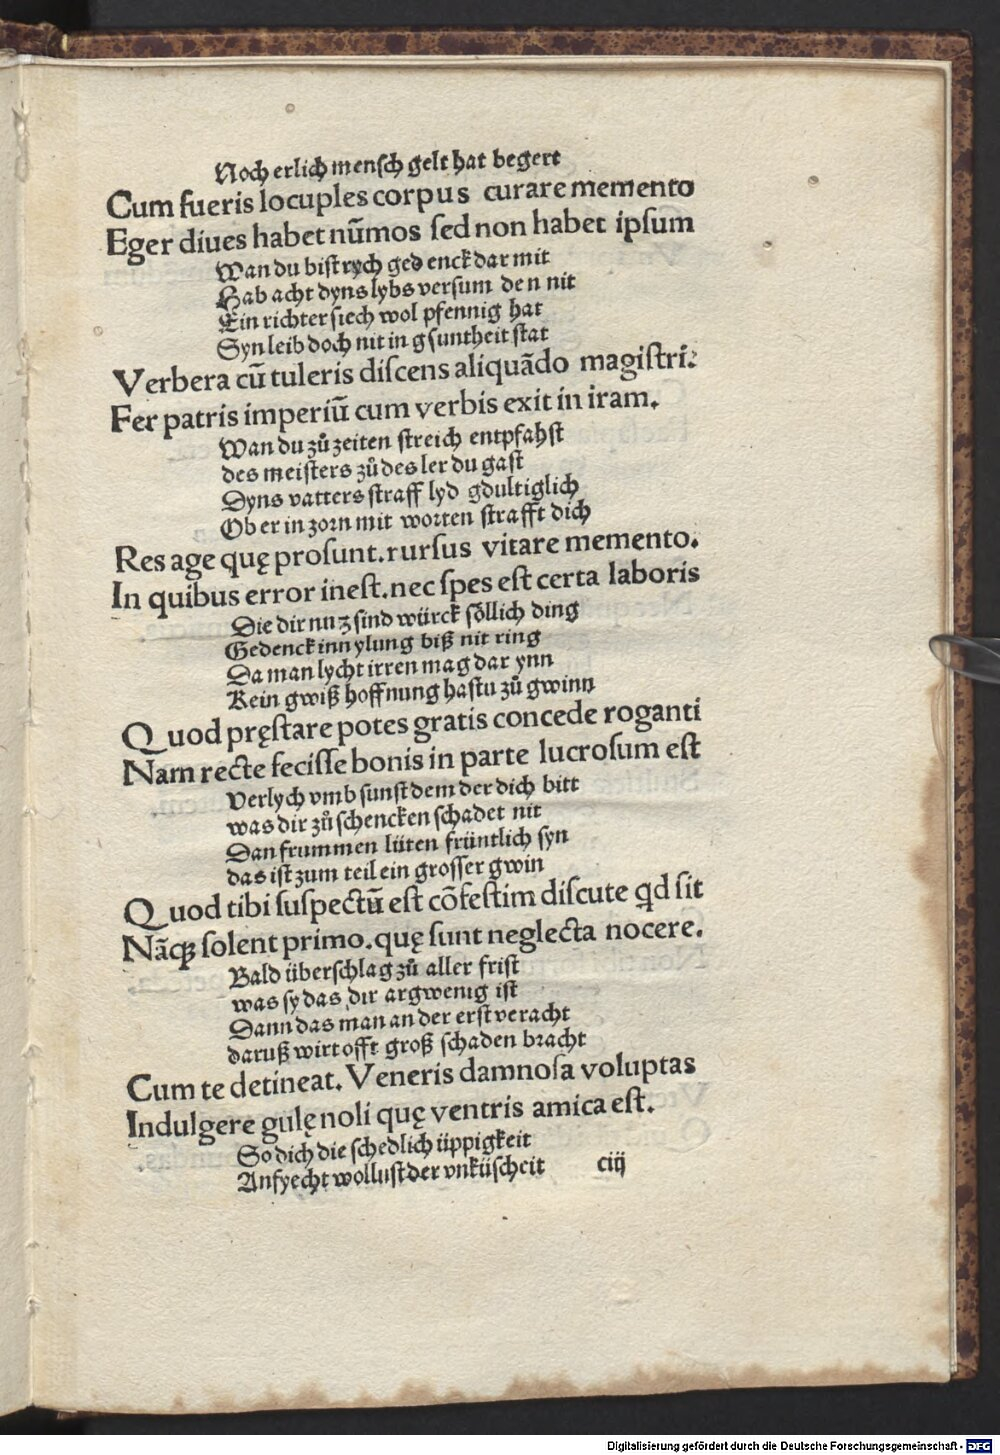 Noch erlich mensch gelt hat begert
Cum fueris locuples corpus curare memento
Eger diues habet nūmos sed non habet ipsum
Wan du bist rych gedenck dar mit
Hab acht dyns lybs versum den nit
Ein richter siech wol pfennig hat
Syn leib doch nit in gsuntheit stat
Verbera cū tuleris discens aliquādo magistri:
Fer patris imperiū cum verbis exit in iram.
Wan du zů zeiten streich entpfahst
des meisters zů des ler du gast
Dyns vatters straff lyd gdultiglich
Ob er in zorn mit worten strafft dich
Res age quę prosunt. rursus vitare memento.
In quibus error inest. nec spes est certa laboris
Die dir nuz sind würck söllich ding
Gedenck inn ylung biß nit ring
Da man lycht irren mag dar ynn
Kein gwiß hoffnung hastu zů gwinn
Quod pręstare potes gratis concede roganti
Nam recte fecisse bonis in parte lucrosum est
Verlych vmb sunst dem der dich bitt
was dir zů schencken schadet nit
Dan frummen lüten früntlich syn
das ist zum teil ein grosser gwin
Quod tibi suspectū est cōfestim discute qd sit
Nāqꝫ solent primo. quę sunt neglecta nocere.
Bald überschlag zů aller frist
was sy das dir argwenig ist
Dann das man an der erst veracht
daruß wirt offt groß schaden bracht
Cum te detineat. Veneris damnosa voluptas
Indulgere gulę noli quę ventris amica est.
So dich die schedlich üppigkeit
Anfyecht wollust der vnküscheit ciij
Digitalisierung gefördert durch die Deutsche Forschungsgemeinschaft - DFG